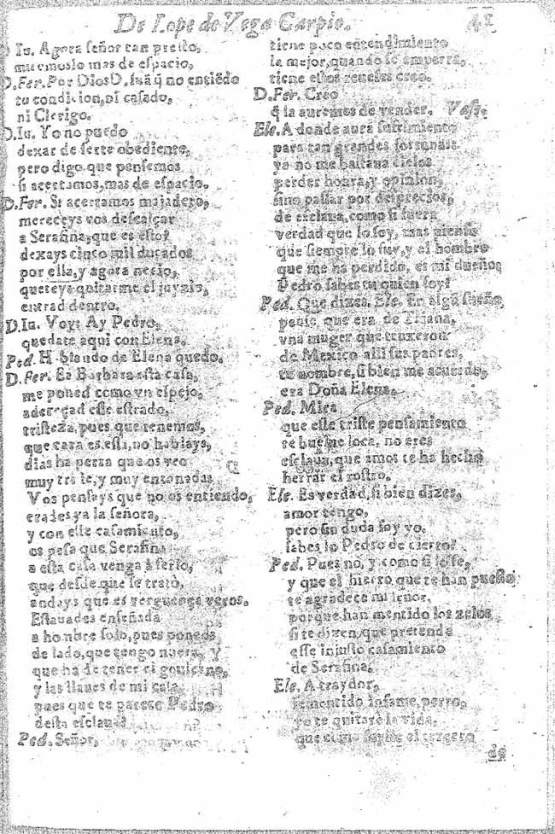 De Lope de Vega Carpio.
D. Iu. Agora señor tan presto,
mas de espacio,
D. Fer. Por Dios D, Iuã q̃ no entiẽdo
tu condicion, ni casado,
ni Clerigo.
D. Iu. Yo no puedo
dexar de serte obediente,
pero digo que pensemos
si acertamos, mas de espacio,
D. Fer. Si acertamos majadero,
mereceys vos descalçar
a Serafina, que es esto?
dexays cinco mil ducados
por ella, y agora necio,
quereys quitarme el juyzio,
entrad dentro.
D. Iu. Voy: Ay Pedro,
quedate aqui con Elena.
Ped. Hablando de Elena quedo.
D. Fer. Ea Barbara esta casa,
me poned como vn espejo,
adereçad esse estrado,
tristeza, pues que tenemos,
que cara es esta, no hablays,
dias ha perra que os veo
muy triste, y muy entonada,
Vos pensays que no os entiendo,
erades ya la señora,
y con este casamiento,
os pesa que Serafina
a esta casa venga a serlo,
que desde que se trató,
andays que es verguença veros.
Estauades enseñada
a hombre solo, pues poneos
de lado, que tengo nuera, y
que ha de tener el gouierno,
y las llaues de mi casa,
pues que te parece Pedro
desta esclaua?
Ped. Señor,
tiene poco entendimiento
la mejor, quando se emperra,
tiene estos reueses creo.
D. Fer. Creo
q̃ la auremos de vender. Vase.
Ele. A donde aura sufrimiento
para tan grandes fortunas
ya no me bastaua cielos
perder honra, y opinion,
sino passar por desprecios,
de esclaua, como si fuera
verdad que lo soy, mas miento
que siempre lo fuy, y el hombre
que me ha perdido, es mi dueño,
Pedro sabes tu quien soy?
Ped. Que dizes. Ele. En algũ sueño
pense que era de Triana,
vna muger que truxeron
de Mexico alli sus padres,
su nombre, si bien me acuerdo,
era Doña Elena.
Ped. Mira
que esse triste pensamiento
te buelue loca, no eres
esclaua, que amor te ha hecho
herrar el rostro.
Ele. Es verdad, si bien dizes,
amor tengo,
pero sin duda soy yo,
sabeslo Pedro de cierto?
Ped. Pues no, y como si lo se,
y que el hierro que te han puesto
te agradece mi señor,
porque han mentido los zelos
si te dizen, que pretende
esse injusto casamiento
de Serafina.
Ele. A traydor,
fementido infame, perro,
yo te quitarè la vida,
que como el
de